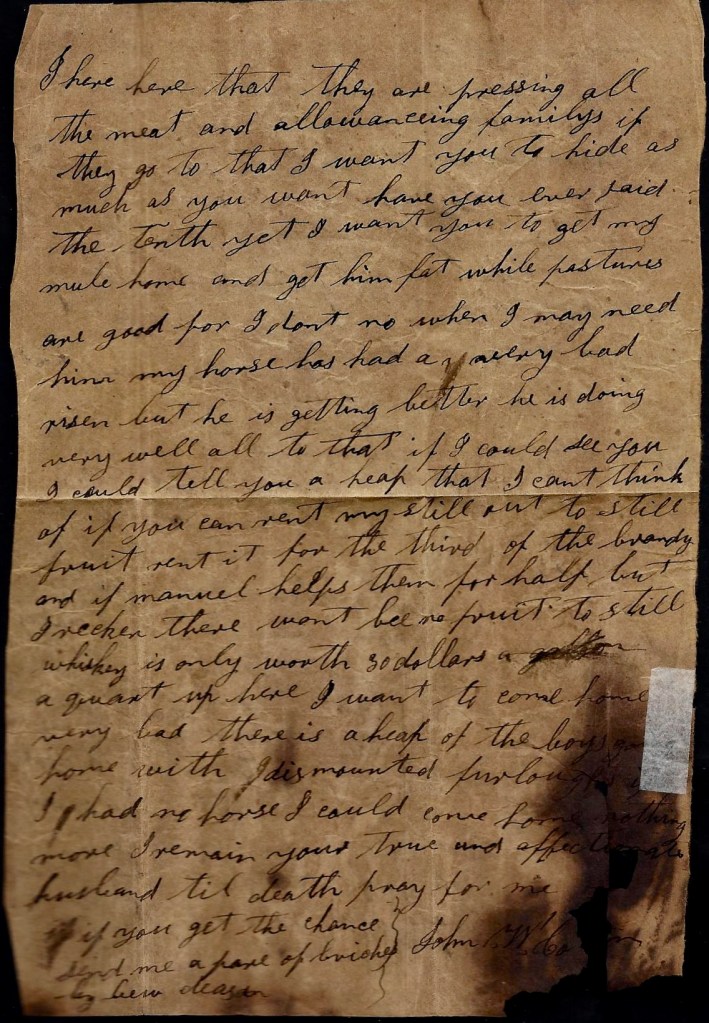 I here here that they are pressing all
the meat and allowanceing familys if
they go to that I want you to hide as
much as you want have you ever paid
the Tenth yet I want you to get my
mule home and get him fat while pastures
are good for I dont no when I may need
him my horse has had a very bad
risen but he is getting better he is doing
very well all to that if I could see you
I could tell you a heap that I cant think
of if you can rent my still out to still
fruit rent it for the third of the brandy
and if manuel helps them for half but
I recken there wont bee no fruit to still
whiskey is only worth 30 dollars a gallon
a quart up here I want to come home
very bad there is a heap of the boys
home with dismounted furloughs
I had no horse I could come home nothing
more I remain your true and affectionate
husband til death pray for me
if you get the chance
John
send me a pare of briches
by